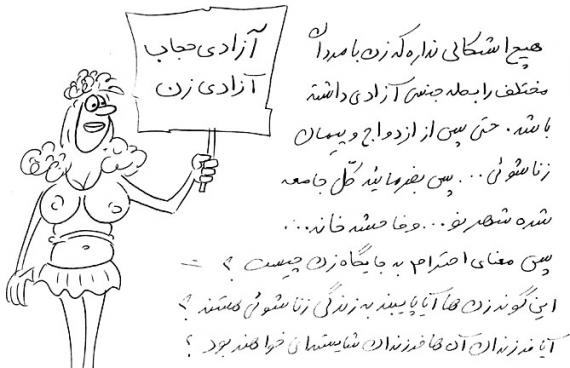 آزادی حجاب
آزادی زن
هیچ اشکالی نداره که زن با مردان
مختلف رابطه جنسی آزادی داشته
باشد. حتی پس از ازدواج و پیمان
زناشوئی... پس بفرمایید کل جامعه
شده شهر نو... و فاحشه خانه...
پس معنای احترام به جایگاه زن چیست؟ -
این گونه زن ها آیا پایبند به زندگی زناشوئی هستند؟
آیا فرزندان آن ها فرزندان شایسته‌ای خواهند بود؟